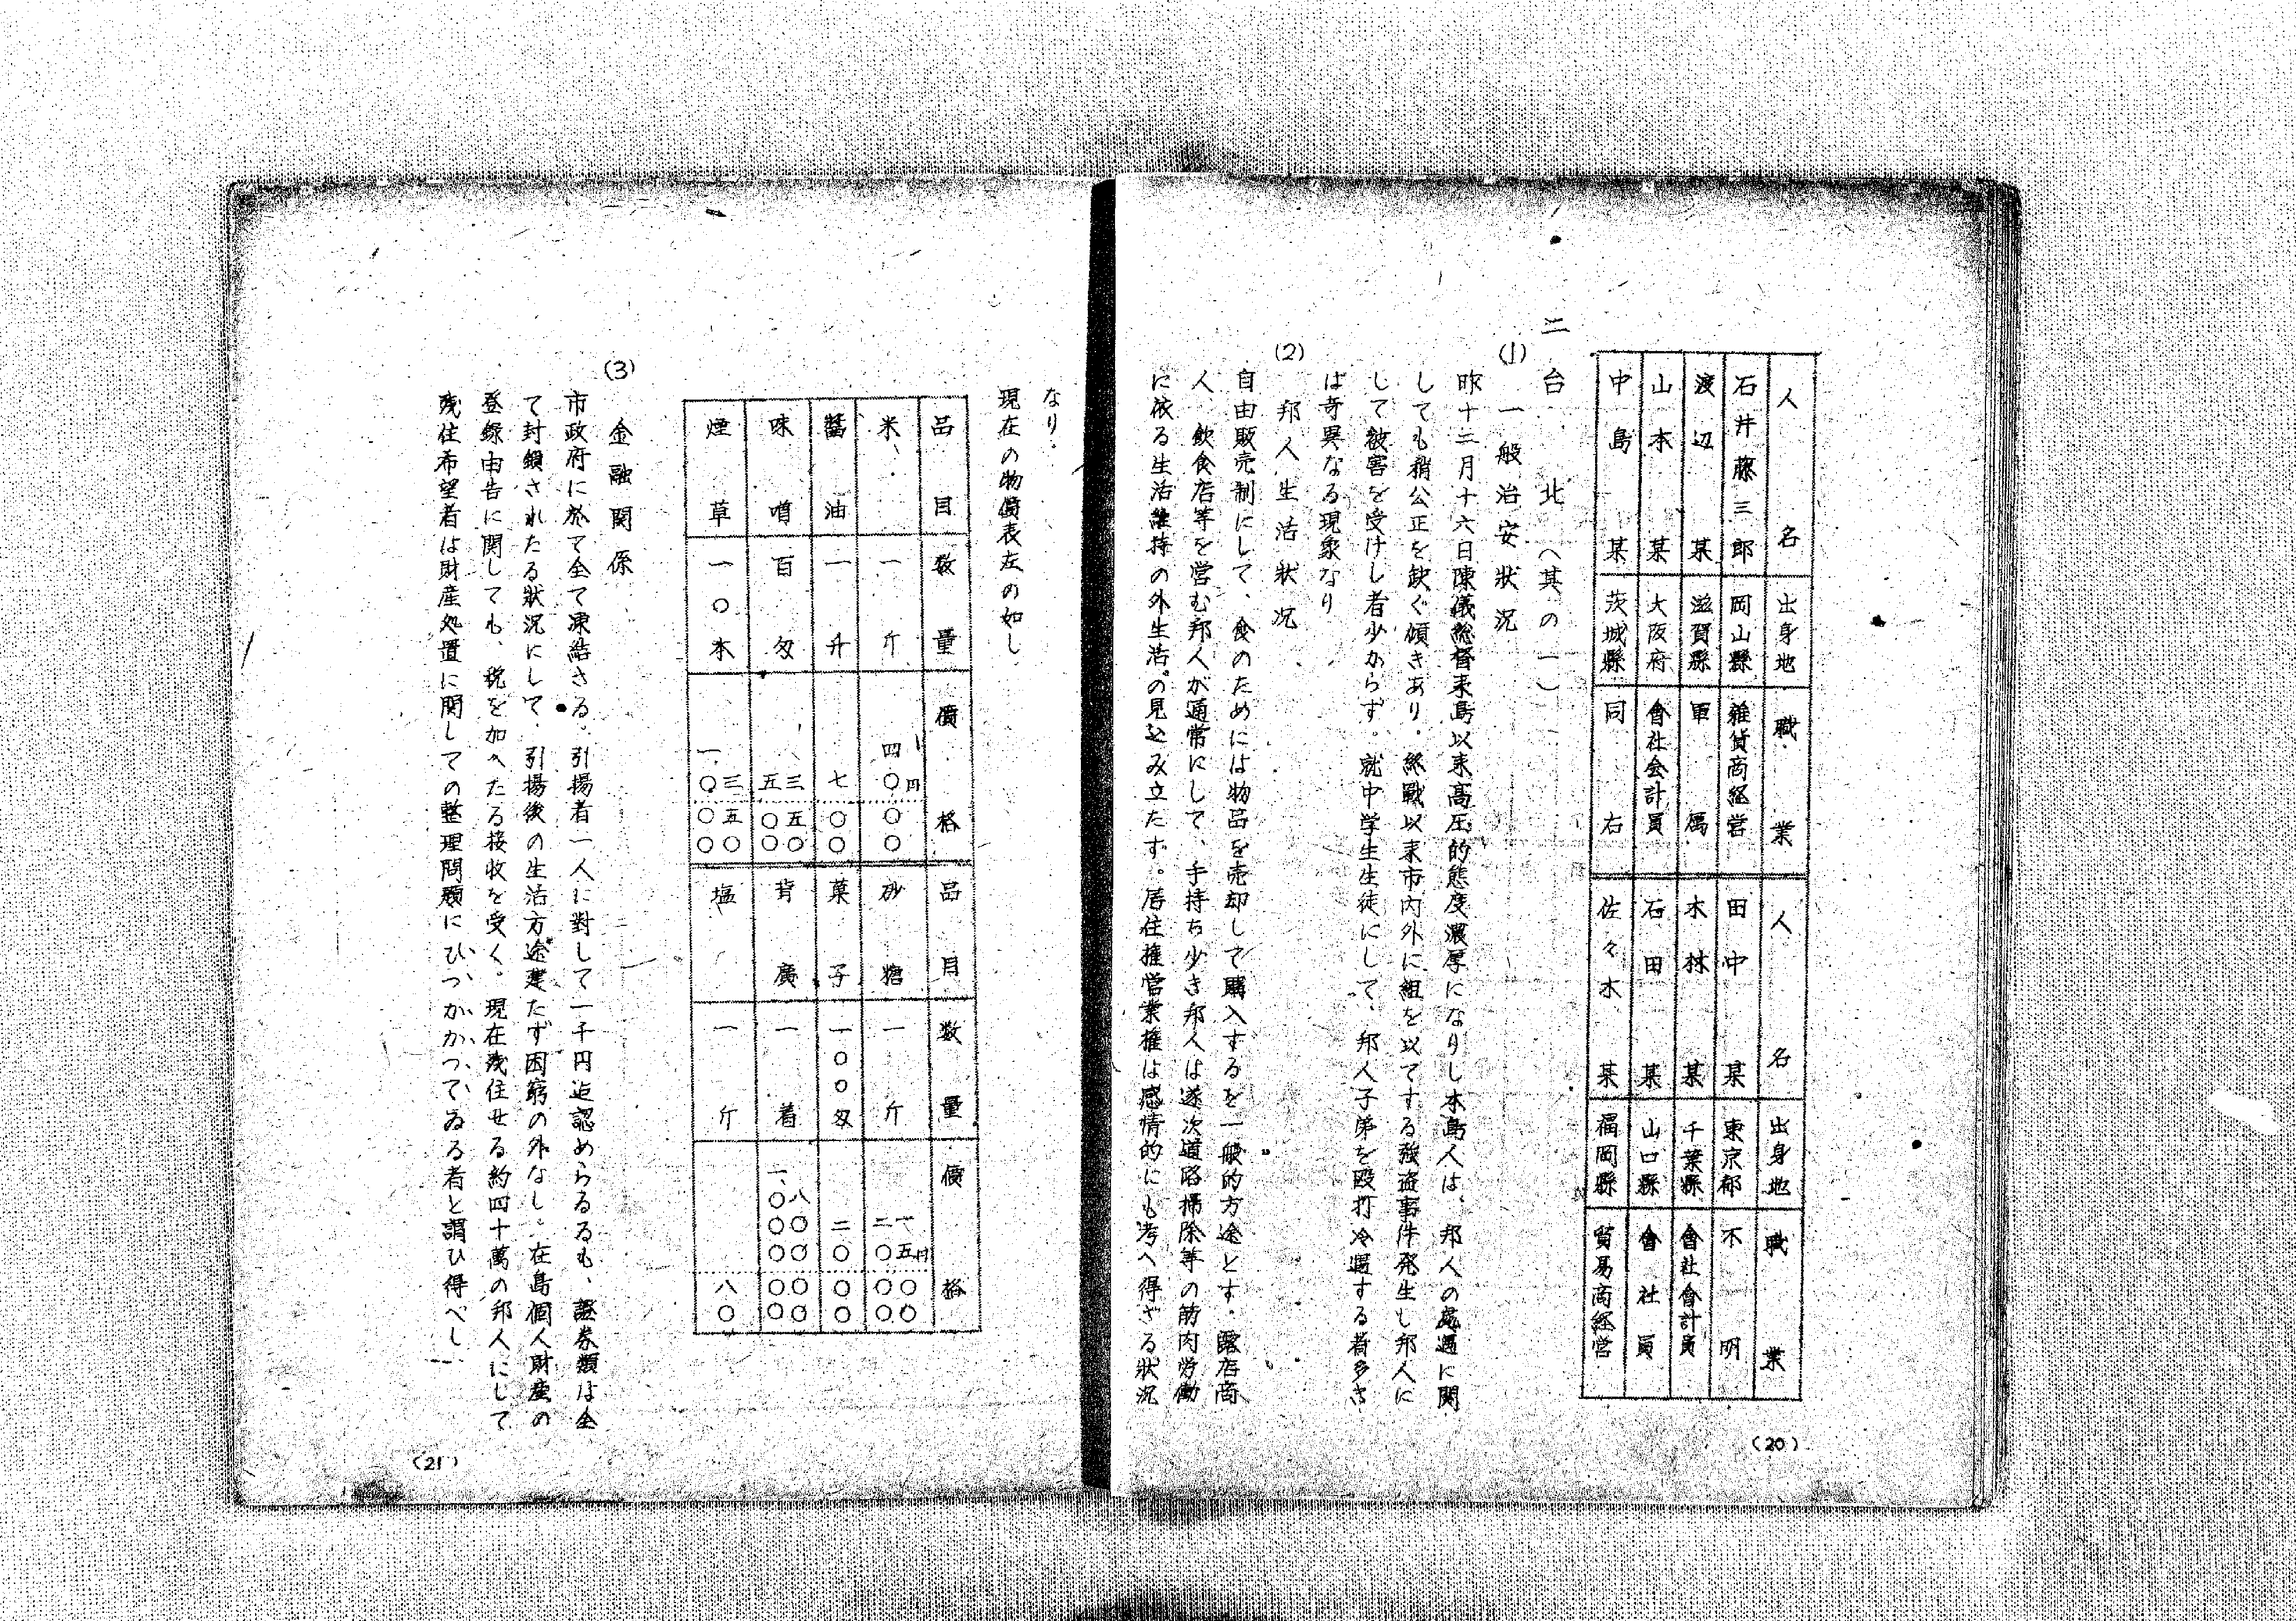 人名 出身地 職業 人名 出身地 職業
石井藤三郎 岡山縣 雑貨商経営 田中某 東京都 不明
渡辺某 滋賀縣 軍属 木村某 千葉縣 會社會計員
山本某 大阪府 會社会計員 石田某 山口縣 會社員
中島某 茨城縣 同右 佐々木某 福岡縣 貿易商経営
二 台 北 (其の一)
(1) 一般治安狀況
昨十二月十六日陳儀総督来島以来高圧的態度濃厚になりし本島人は、邦人の處遇に関
しても稍公正を缺ぐ傾きあり。終戰以来市内外に組を以てする強盗事件発生し邦人に
して被害を受けし者少からず。就中学生生徒にして、邦人子弟を毆打冷遇する者多き
は奇異なる現象なり
(2) 邦人生活狀況
自由販売制にして、食のためには物品を売却して購入するを一般的方途とす。露店商
人、飲食店等を営む邦人が通常にして、手持ち少き邦人は逐次道路掃除等の筋肉労働
に依る生活維持の外生活の見込み立たず。居住権営業権は感情的にも考へ得ざる狀況
(20)
なり。
現在の物價表左の如し
品目 数量 價格 品目 数量 價格
米 一斤 四〇円〇〇 砂糖 一斤 一五円〇〇 二〇〇〇
醤油 一升 七〇〇 菓子 一〇〇匁 二〇〇〇
味噌 百匁 三五〇 五〇〇 背廣 一着 八〇〇〇〇 一、〇〇〇〇〇
煙草 一〇本 三五〇 一〇〇〇 塩 一斤 八〇
(3) 金融関係
市政府に於て全て凍結さる。引揚者一人に對して一千円迄認めらるるも、証券類は全
て封鎖されたる狀況にして、引揚後の生活方途建たず困窮の外なし。在島個人財産の
登録申告に関しても、税を加へたる接收を受く。現在残住せる約四十萬の邦人にして
残住希望者は財産処置に関しての整理問題にひつかかつてゐる者と謂ひ得べし
(21)